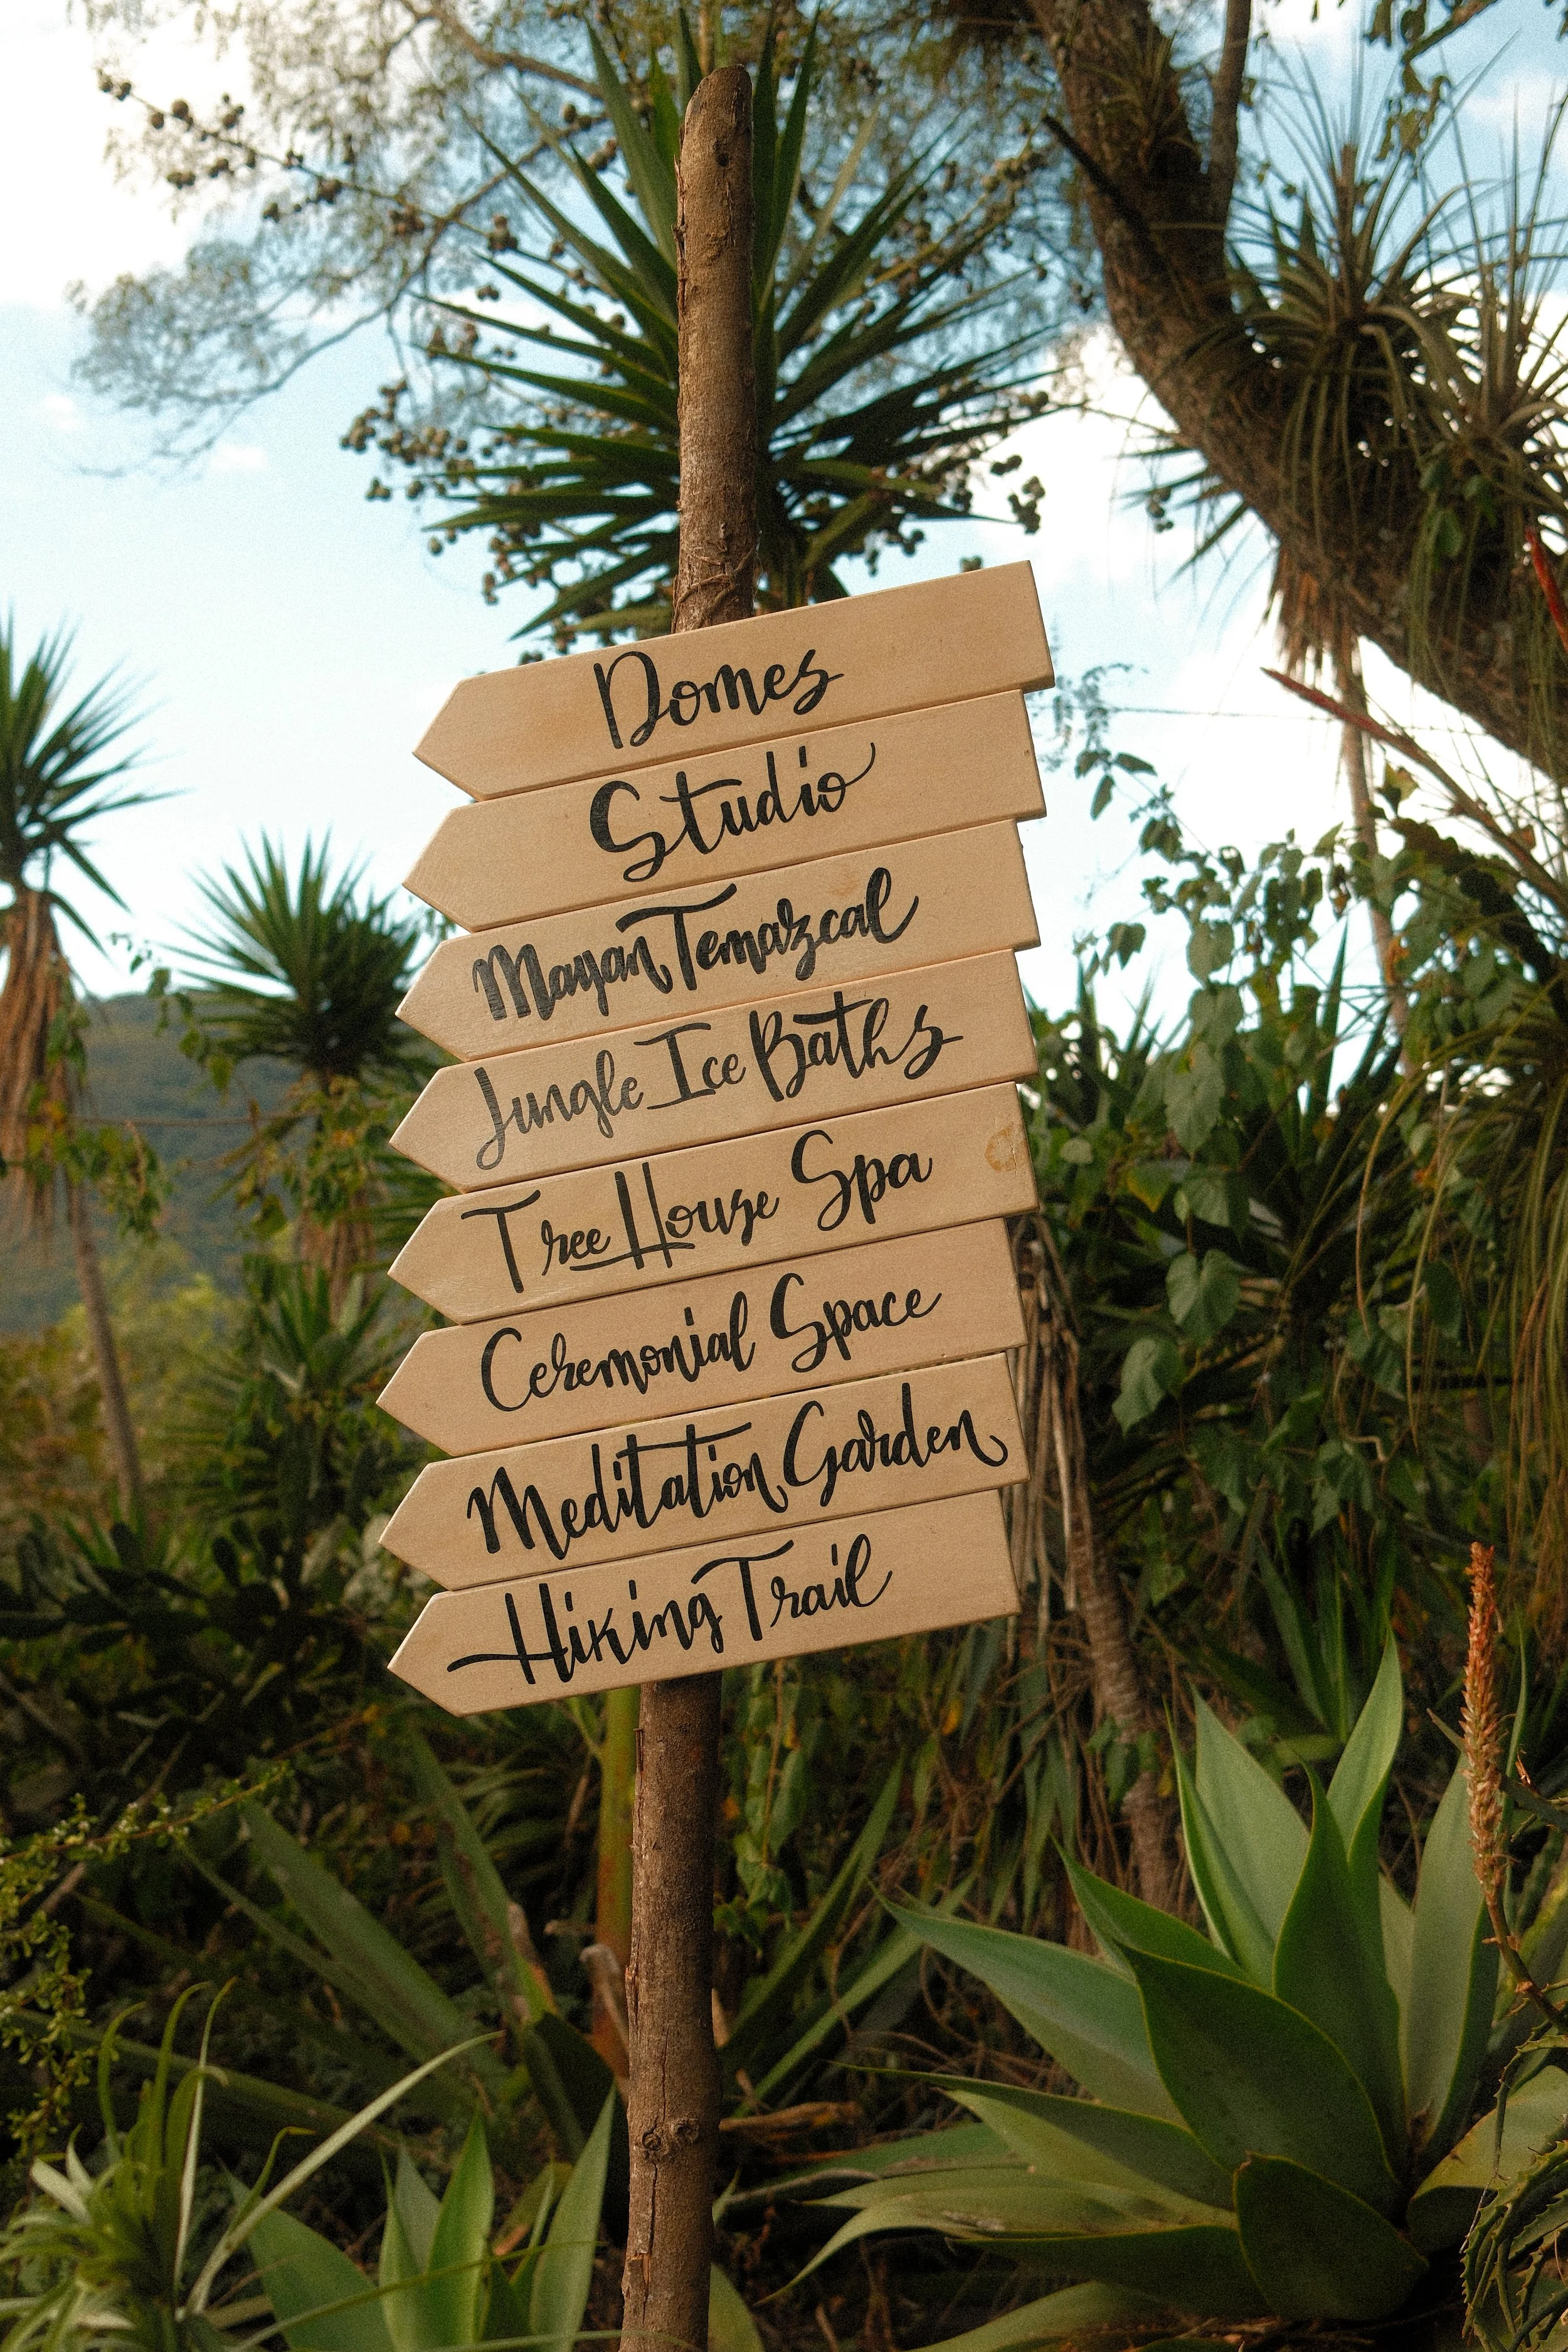 Domes
Studio
Mayan Temazcal
Jungle Ice Baths
Tree House Spa
Ceremonial Space
Meditation Garden
Hiking Trail